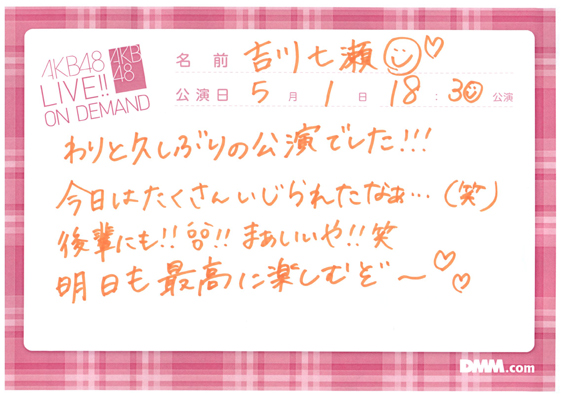 AKB48
LIVE!!
ON DEMAND
AKB
48
名前 吉川七瀬
公演日 5月1日 18:30公演
わりと久しぶりの公演でした!!!
今日はたくさんいじられたなぁ…(笑)
後輩にも!!!!まぁいいや!!笑
明日も最高に楽しむぞ〜
DMM.com